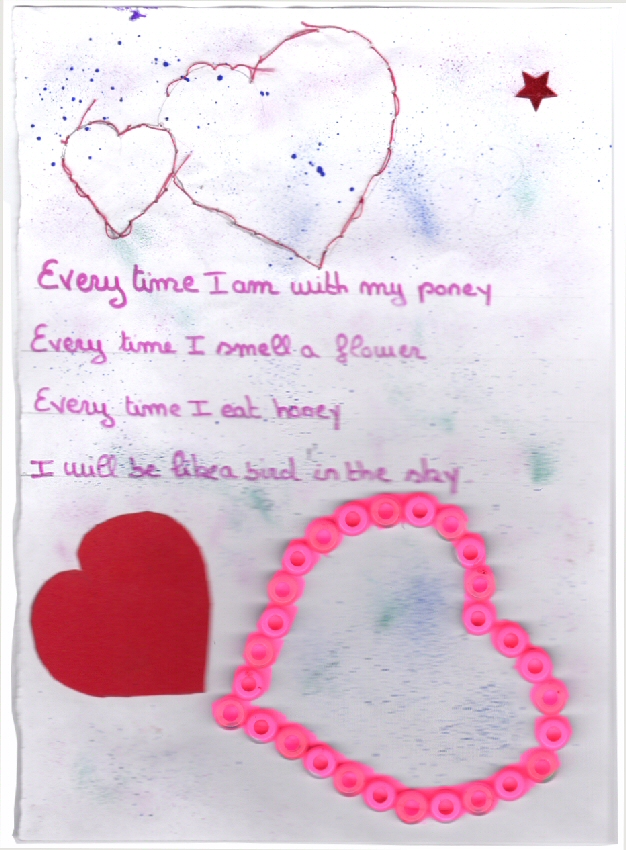 Every time I am with my poney
Every time I smell a flower
Every time I eat honey
I will be like a bird in the sky